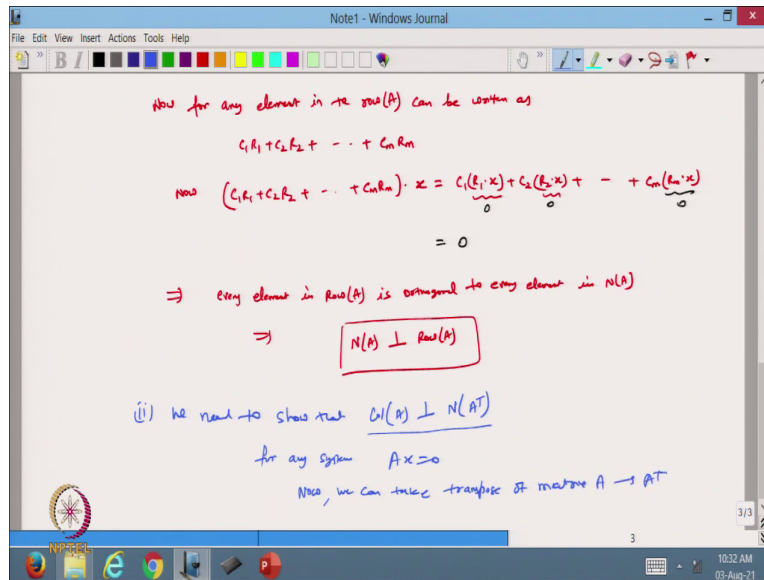 Note1 - Windows Journal
File Edit View Insert Actions Tools Help
Now for any element in te row(A) can be written as
C₁R₁ + C₂R₂ + - · · + CmRm
Now (C₁R₁ + C₂R₂ + - · · + CmRm) · x = C₁(R₁·x) + C₂(R₂·x) + - + Cm(Rm·x)
0 0 0
= 0
⇒ every element in Row(A) is orthogonal to every element in N(A)
⇒ N(A) ⊥ Row(A)
(ii) We need to show that Col(A) ⊥ N(Aᵀ)
for any system Ax=0
Now, we can take transpose of matrix A → Aᵀ
3/3
NPTEL
3
10:32 AM
03-Aug-21